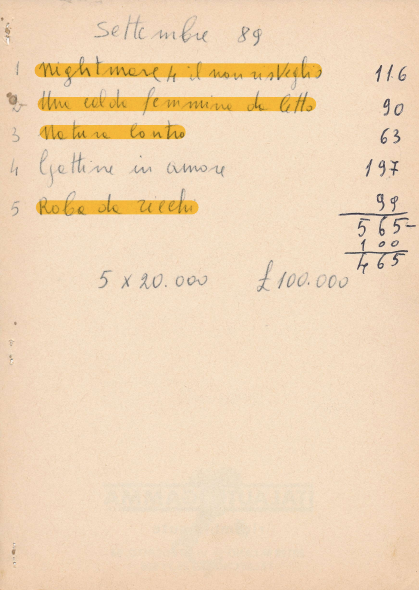 Settembre 89
1 Nightmare 4 il non risveglio 116
2 Una calda femmina da letto 90
3 Natura contro 63
4 Gattine in amore 197
5 Roba da ricchi 99
565-
100
465
5 x 20.000 £ 100.000